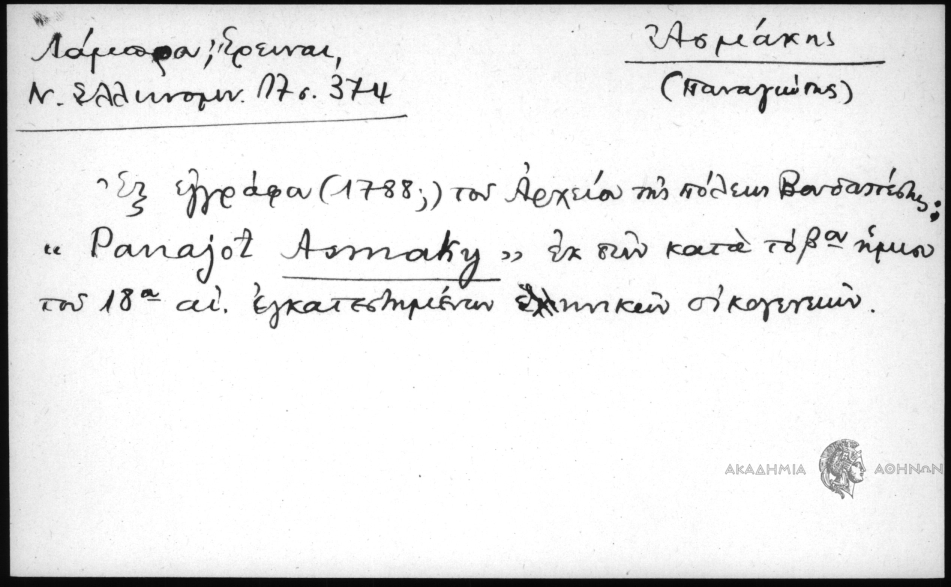 Λάμπρου, Ἔρευναι,
Ν. Ἑλληνομν. 17 σ. 374
Ἀσμάκης
(Παναγιώτης)
Ἐξ ἐγγράφου (1788;) τοῦ Ἀρχείου τῆς πόλεως Βουδαπέστης:
« Panajot Asmaky » ἐκ τῶν κατὰ τὸ βον ἥμισυ
τοῦ 18ου αἰ. ἐγκατεστημένων ἑλληνικῶν οἰκογενειῶν.
ΑΚΑΔΗΜΙΑ ΑΘΗΝΩΝ